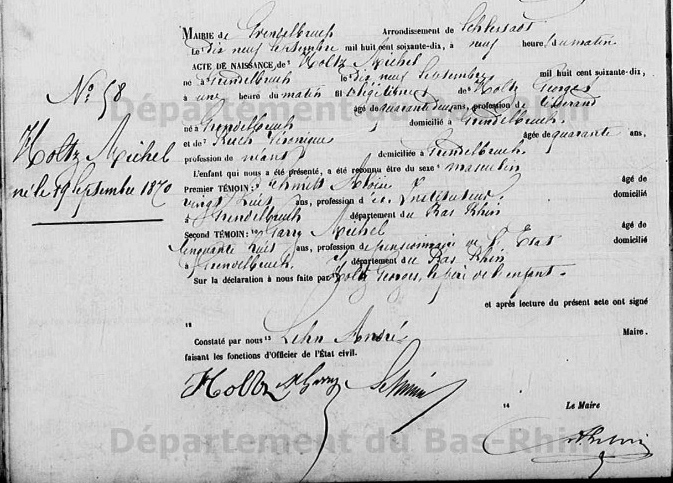 MAIRIE de Grendelbruch Arrondissement de Schlestadt
Le dix neuf septembre mil huit cent soixante-dix, à neuf heure, du matin
ACTE DE NAISSANCE de Holtz Michel
né à Grendelbruch le dix neuf septembre mil huit cent soixante-dix,
à une heure du matin fil légitime de Holtz Georges
âgé de quarante deux ans, profession de tisserand
né à Grendelbruch domicilié à Grendelbruch.
et de Ruch Véronique âgée de quarante ans,
profession de néant domiciliée à Grendelbruch.
L'enfant qui nous a été présenté, a été reconnu être du sexe masculin
PREMIER TÉMOIN: Schmitt âgé de
vingt huit ans, profession d'Instituteur. domicilié
à Grendelbruch département du Bas Rhin
Second TÉMOIN: Harry Michel âgé de
cinquante huit ans, profession de pensionnaire de l'Etat domicilié
à Grendelbruch. département du Bas Rhin
Sur la déclaration à nous faite par Holtz Georges, le père de l'enfant.
et après lecture du présent acte ont signé
12
Constaté par nous 13 Lehn André Maire.
faisant les fonctions d'Officier de l'État civil.
Holtz
14 Le Maire
No 58
Holtz Michel
né le 19 Septembre 1870
Département du Bas-Rhin
Département du Bas-Rhin